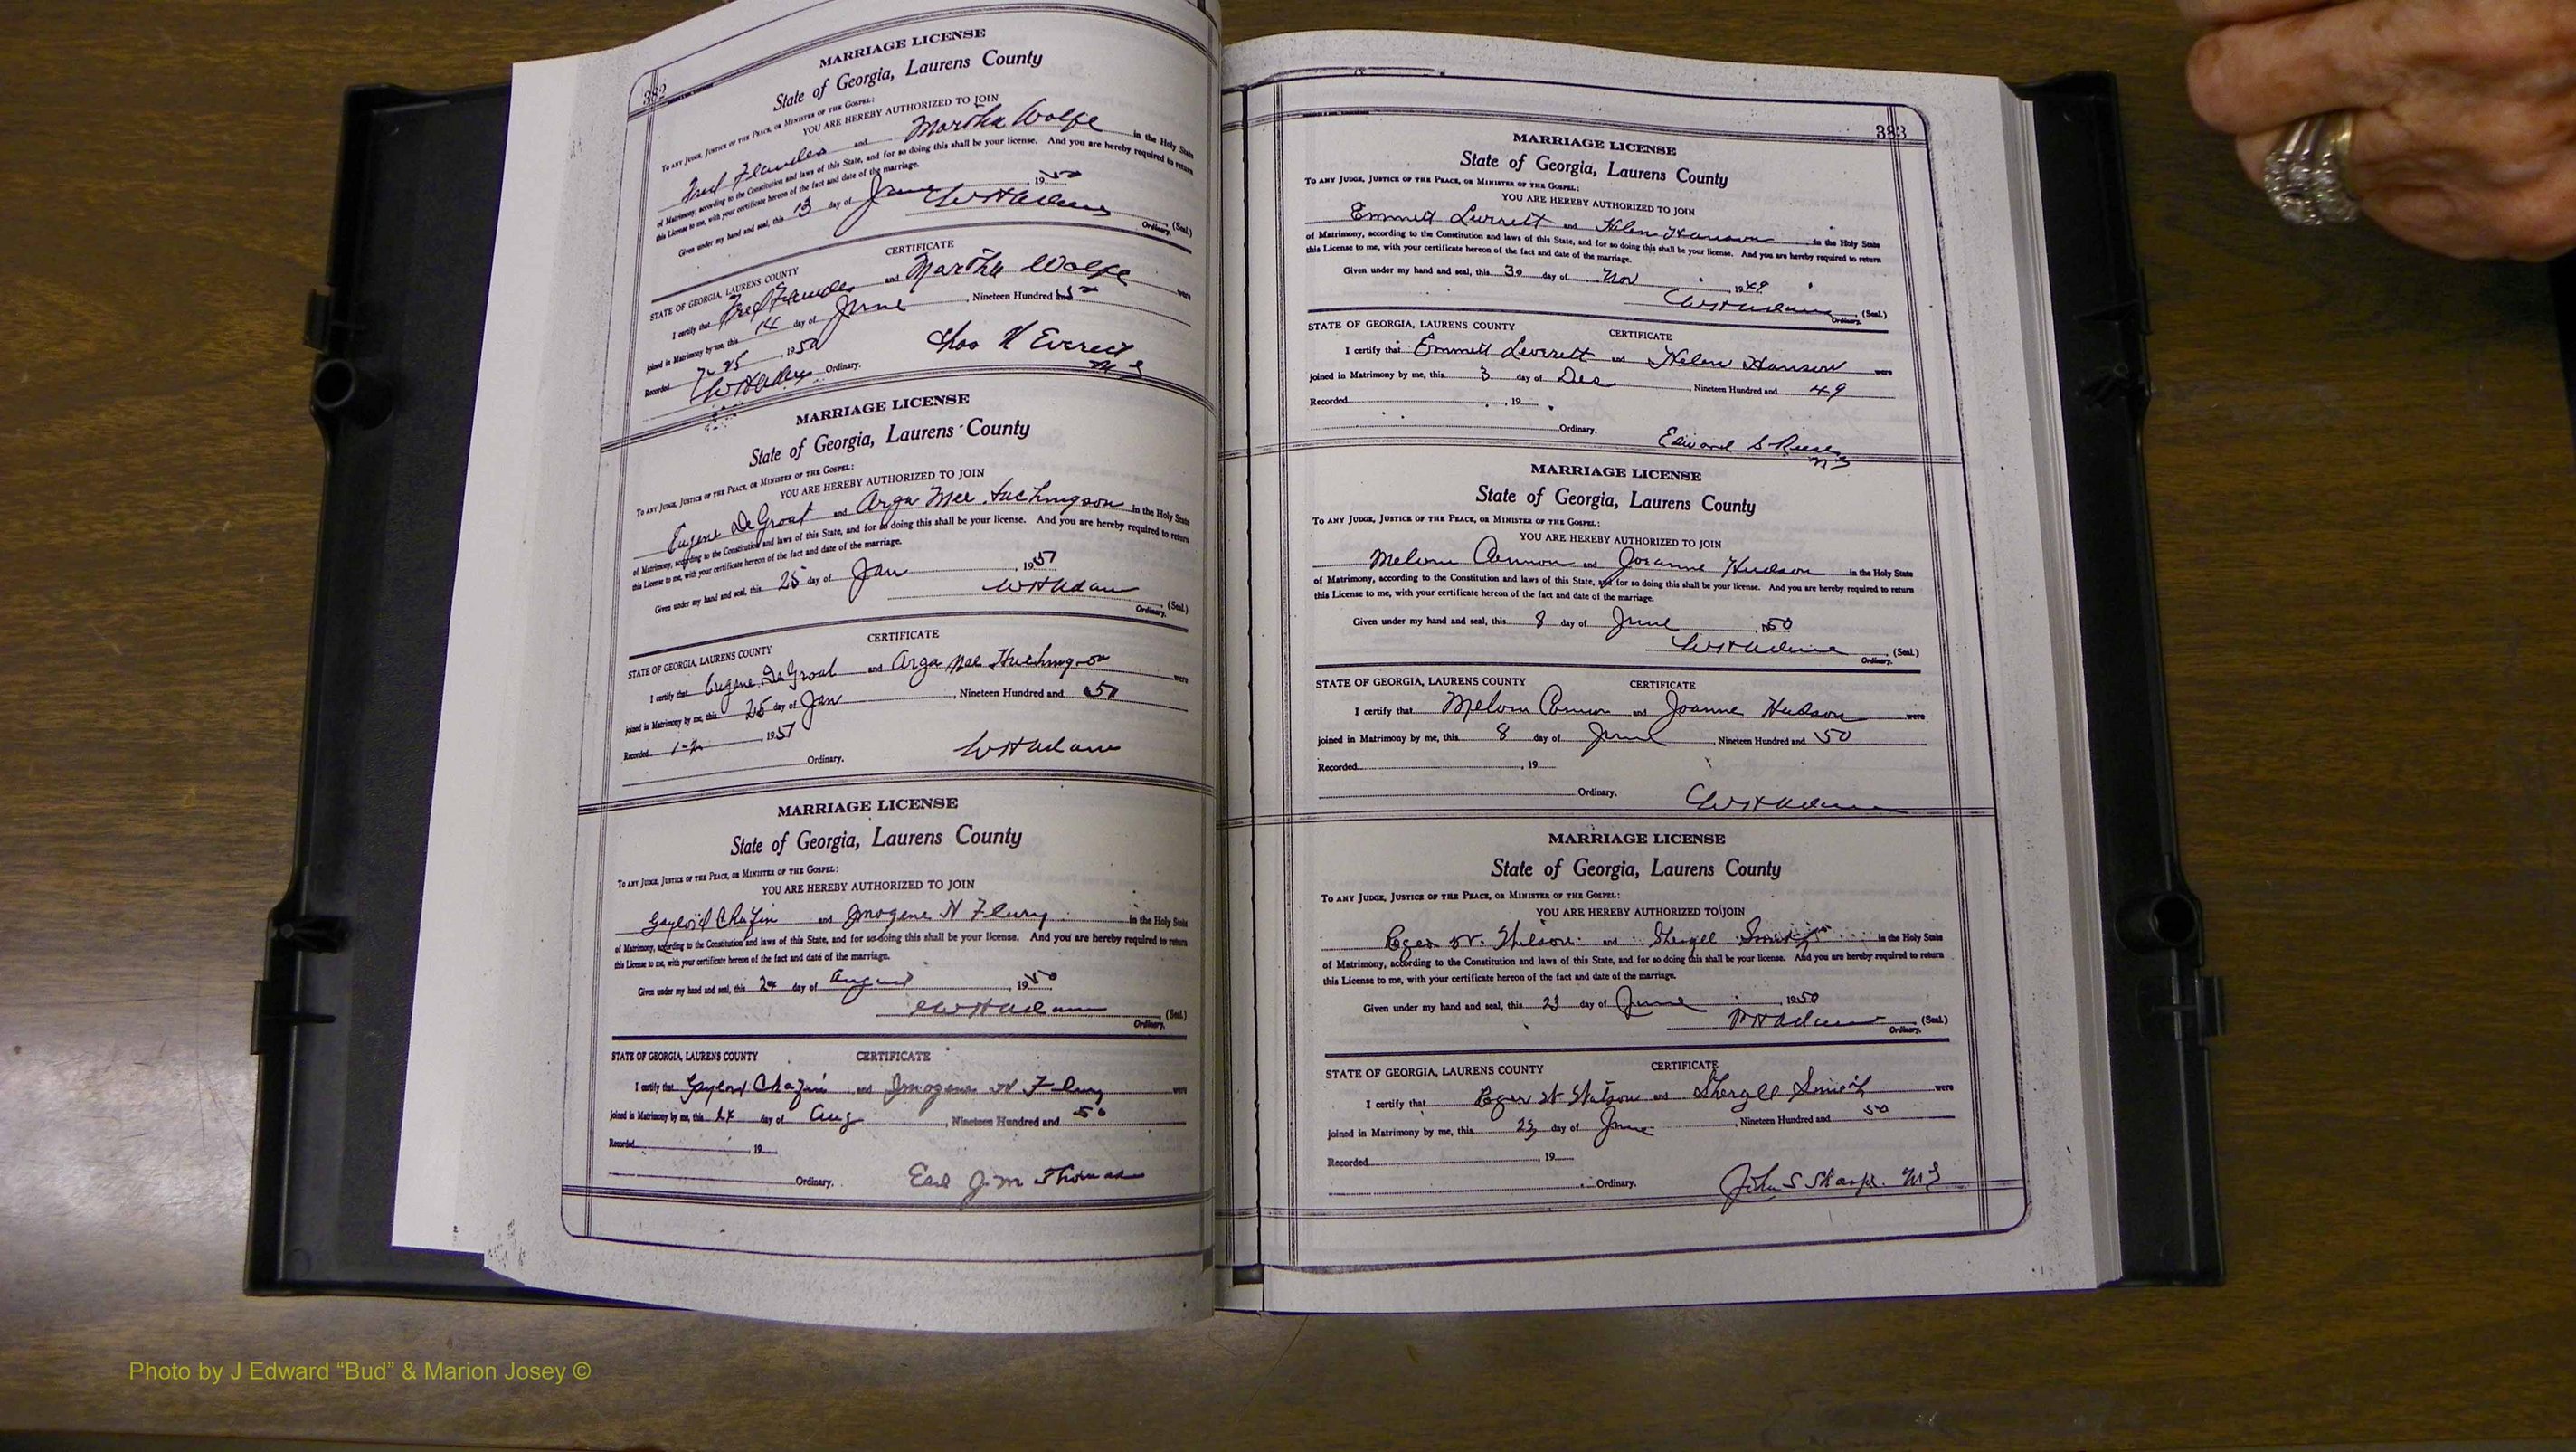 382
MARRIAGE LICENSE
State of Georgia, Laurens County
To any Judge, Justice of the Peace, or Minister of the Gospel:
YOU ARE HEREBY AUTHORIZED TO JOIN
Fred Flanders and Martha Wolfe in the Holy State
of Matrimony, according to the Constitution and laws of this State, and for so doing this shall be your license. And you are hereby required to return
this License to me, with your certificate hereon of the fact and date of the marriage.
Given under my hand and seal, this 13 day of June, 1950
W H Adams (Seal.)
Ordinary.
CERTIFICATE
STATE OF GEORGIA, LAURENS COUNTY
I certify that Fred Flanders and Martha Wolfe were
joined in Matrimony by me, this 14 day of June, Nineteen Hundred and 50
Recorded 1950
W H Adams Ordinary.
Chas H Everett
M G
MARRIAGE LICENSE
State of Georgia, Laurens County
To any Judge, Justice of the Peace, or Minister of the Gospel:
YOU ARE HEREBY AUTHORIZED TO JOIN
Eugene DeGroat and Arga Mee in the Holy State
of Matrimony, according to the Constitution and laws of this State, and for so doing this shall be your license. And you are hereby required to return
this License to me, with your certificate hereon of the fact and date of the marriage.
Given under my hand and seal, this 25 day of Jan, 1951
W H Adams (Seal.)
Ordinary.
CERTIFICATE
STATE OF GEORGIA, LAURENS COUNTY
I certify that Eugene DeGroat and Arga were
joined in Matrimony by me, this 25 day of Jan, Nineteen Hundred and 51
Recorded 1951
W H Adams
Ordinary.
MARRIAGE LICENSE
State of Georgia, Laurens County
To any Judge, Justice of the Peace, or Minister of the Gospel:
YOU ARE HEREBY AUTHORIZED TO JOIN
Gaylord Chafin and Imogene N Flury in the Holy State
of Matrimony, according to the Constitution and laws of this State, and for so doing this shall be your license. And you are hereby required to return
this License to me, with your certificate hereon of the fact and date of the marriage.
Given under my hand and seal, this 24 day of August, 1950
W H Adams (Seal.)
Ordinary.
STATE OF GEORGIA, LAURENS COUNTY CERTIFICATE
I certify that Gaylord Chafin and Imogene N Flury were
joined in Matrimony by me, this 24 day of Aug, Nineteen Hundred and 50
Recorded, 19
Ordinary. Earl Jim Thomas
383
MARRIAGE LICENSE
State of Georgia, Laurens County
To any Judge, Justice of the Peace, or Minister of the Gospel:
YOU ARE HEREBY AUTHORIZED TO JOIN
Emmett Leverett and Helen Hanson in the Holy State
of Matrimony, according to the Constitution and laws of this State, and for so doing this shall be your license. And you are hereby required to return
this License to me, with your certificate hereon of the fact and date of the marriage.
Given under my hand and seal, this 30 day of Nov, 1949
W H Adams (Seal.)
Ordinary.
STATE OF GEORGIA, LAURENS COUNTY CERTIFICATE
I certify that Emmett Leverett and Helen Hanson were
joined in Matrimony by me, this 3 day of Dec, Nineteen Hundred and 49
Recorded, 19
Ordinary.
Edward S Reese
M G
MARRIAGE LICENSE
State of Georgia, Laurens County
To any Judge, Justice of the Peace, or Minister of the Gospel:
YOU ARE HEREBY AUTHORIZED TO JOIN
Melvin Cannon and Joanne Hudson in the Holy State
of Matrimony, according to the Constitution and laws of this State, and for so doing this shall be your license. And you are hereby required to return
this License to me, with your certificate hereon of the fact and date of the marriage.
Given under my hand and seal, this 8 day of June, 1950
W H Adams (Seal.)
Ordinary.
STATE OF GEORGIA, LAURENS COUNTY CERTIFICATE
I certify that Melvin Cannon and Joanne Hudson were
joined in Matrimony by me, this 8 day of June, Nineteen Hundred and 50
Recorded, 19
Ordinary.
W H Adams
MARRIAGE LICENSE
State of Georgia, Laurens County
To any Judge, Justice of the Peace, or Minister of the Gospel:
YOU ARE HEREBY AUTHORIZED TO JOIN
and Sheryll Smith in the Holy State
of Matrimony, according to the Constitution and laws of this State, and for so doing this shall be your license. And you are hereby required to return
this License to me, with your certificate hereon of the fact and date of the marriage.
Given under my hand and seal, this 23 day of June, 1950
W H Adams (Seal.)
Ordinary.
STATE OF GEORGIA, LAURENS COUNTY CERTIFICATE
I certify that and Sheryll Smith were
joined in Matrimony by me, this 23 day of June, Nineteen Hundred and 50
Recorded, 19
Ordinary. John S Sharpe. M G
Photo by J Edward “Bud” & Marion Josey ©